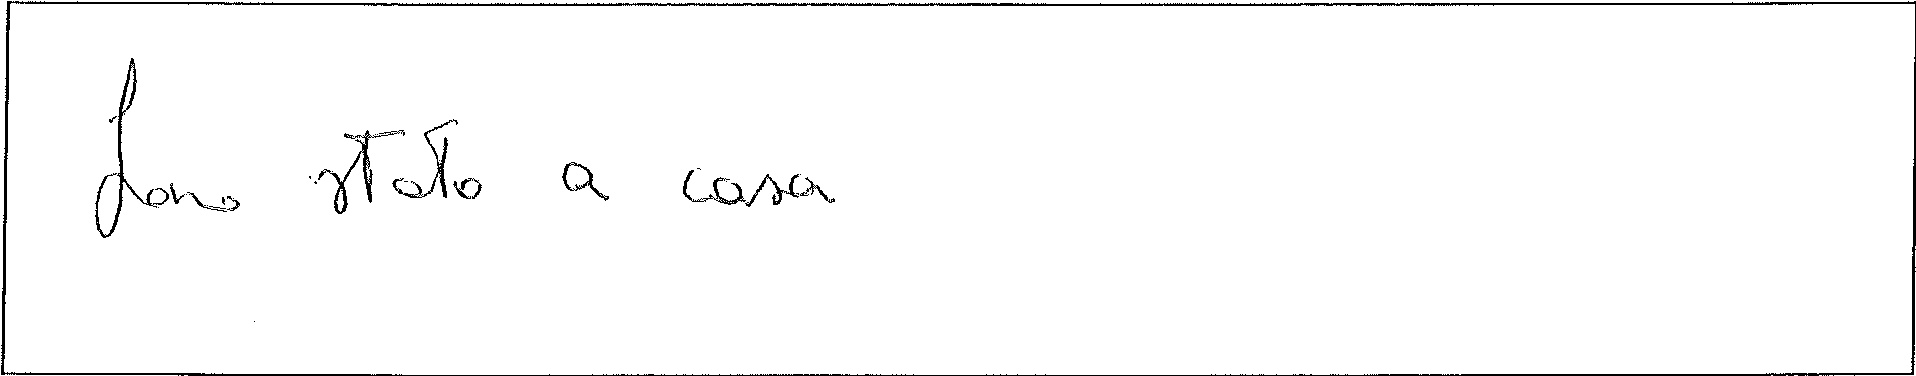 Sono stato a casa